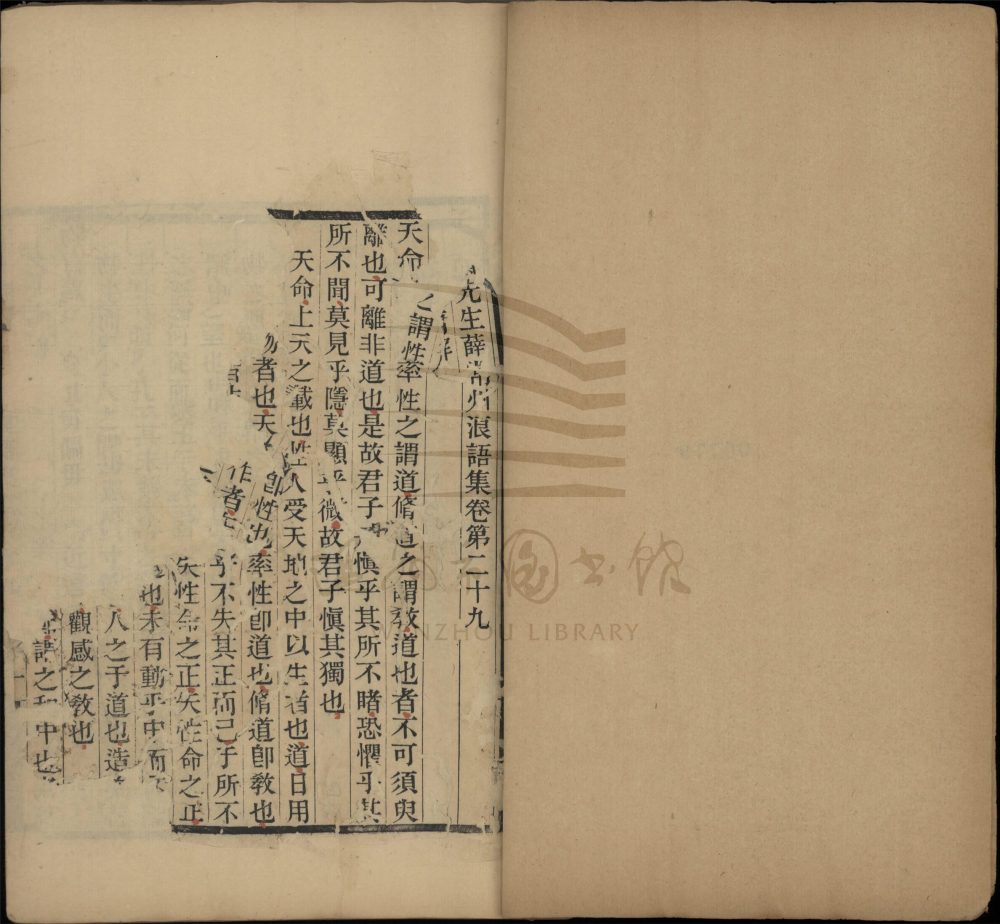 先生薛常州浪語集卷第二十九
天命之謂性率性之謂道脩道之謂敎道也者不可須臾
離也可離非道也是故君子戒慎乎其所不睹恐懼乎其
所不聞莫見乎隱莫顯乎微故君子慎其獨也
天命上天之載也性人受天地之中以生者也道日用
者也天命即性也率性卽道也脩道卽敎也
作者 乎不失其正而已于所不
失性命之正失性命之正
也未有動乎中而
人之于道也造
觀感之敎也
謂之和中也
圖書館
WENZHOU LIBRARY